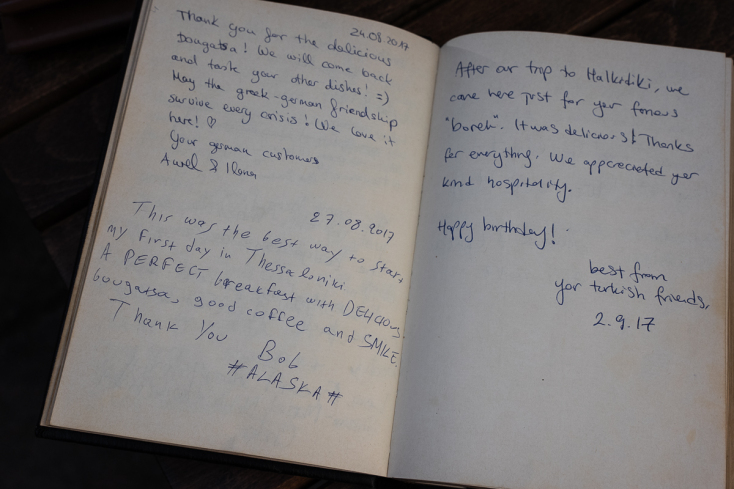 24.08.2017
Thank you for the delicious
Bougatsa! We will come back
and taste your other dishes! =)
May the greek-german friendship
survive every crisis! We love it
here! ♡
Your german customers
Aurel & Ilona
27.08.2017
This was the best way to start
my first day in Thessaloniki
A PERFECT breakfast with DELICIOUS
bougatsa, good coffee and SMILE.
Thank You
Bob
#ALASKA#
After our trip to Halkidiki, we
came here just for your famous
"boreh". It was delicious! Thanks
for everything. We apprecreated yor
kind hospitality.
Happy birthday!
best from
yor turkish friends,
2.9.17